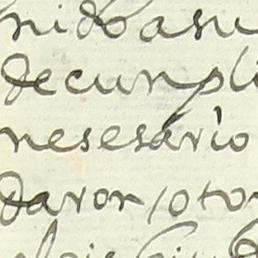 nido a su
de cunpli
nesesário
davor, otor